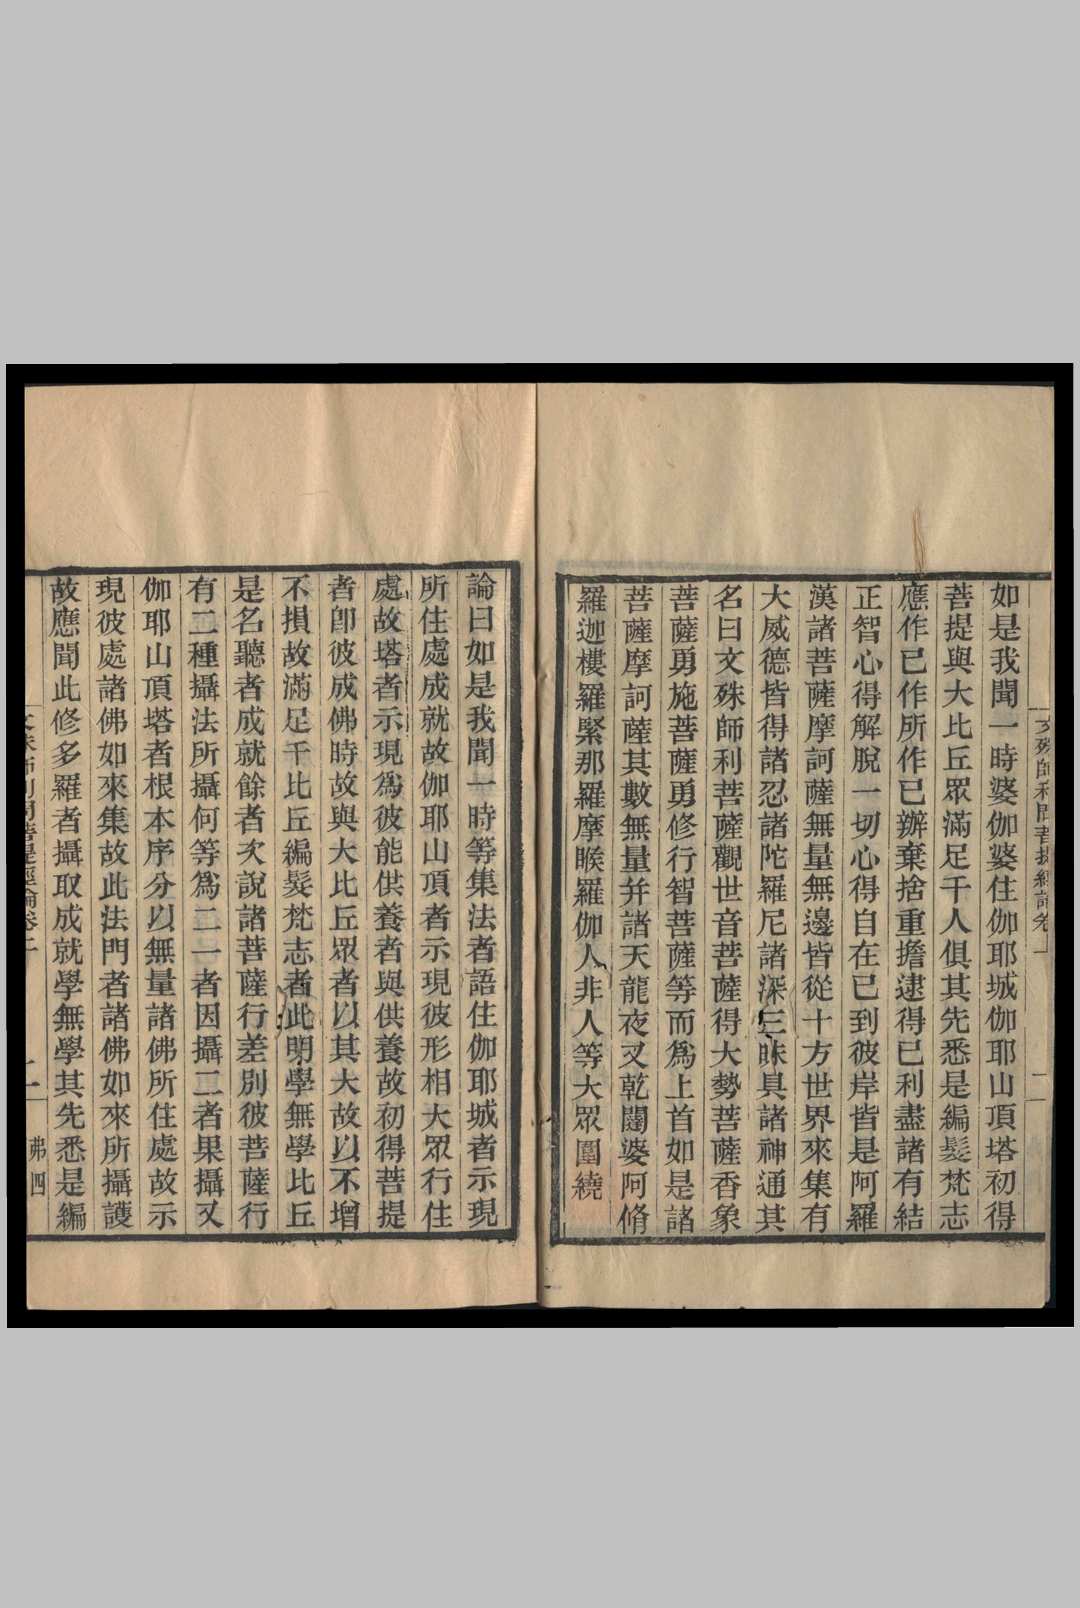 如是我聞一時婆伽婆住伽耶城伽耶山頂塔初得
菩提與大比丘眾滿足千人俱其先悉是編髮梵志
應作已作所作已辦棄捨重擔逮得已利盡諸有結
正智心得解脫一切心得自在已到彼岸皆是阿羅
漢諸菩薩摩訶薩無量無邊皆從十方世界來集有
大威德皆得諸忍諸陀羅尼諸深三昧具諸神通其
名曰文殊師利菩薩觀世音菩薩得大勢菩薩香象
菩薩勇施菩薩勇修行智菩薩等而為上首如是諸
菩薩摩訶薩其數無量并諸天龍夜叉乾闥婆阿脩
羅迦樓羅緊那羅摩睺羅伽人非人等大眾圍繞
論曰如是我聞一時等集法者語住伽耶城者示現
所住處成就故伽耶山頂者示現彼形相大眾行住
處故塔者示現為彼能供養者與供養故初得菩提
者卽彼成佛時故與大比丘眾者以其大故以不增
不損故滿足千比丘編髮梵志者此明學無學比丘
是名聽者成就餘者次說諸菩薩行差別彼菩薩行
有二種攝法所攝何等為二一者因攝二者果攝又
伽耶山頂塔者根本序分以無量諸佛所住處故示
現彼處諸佛如來集故此法門者諸佛如來所攝護
故應聞此修多羅者攝取成就學無學其先悉是編
文殊師利問菩提經論卷上
二
弗四